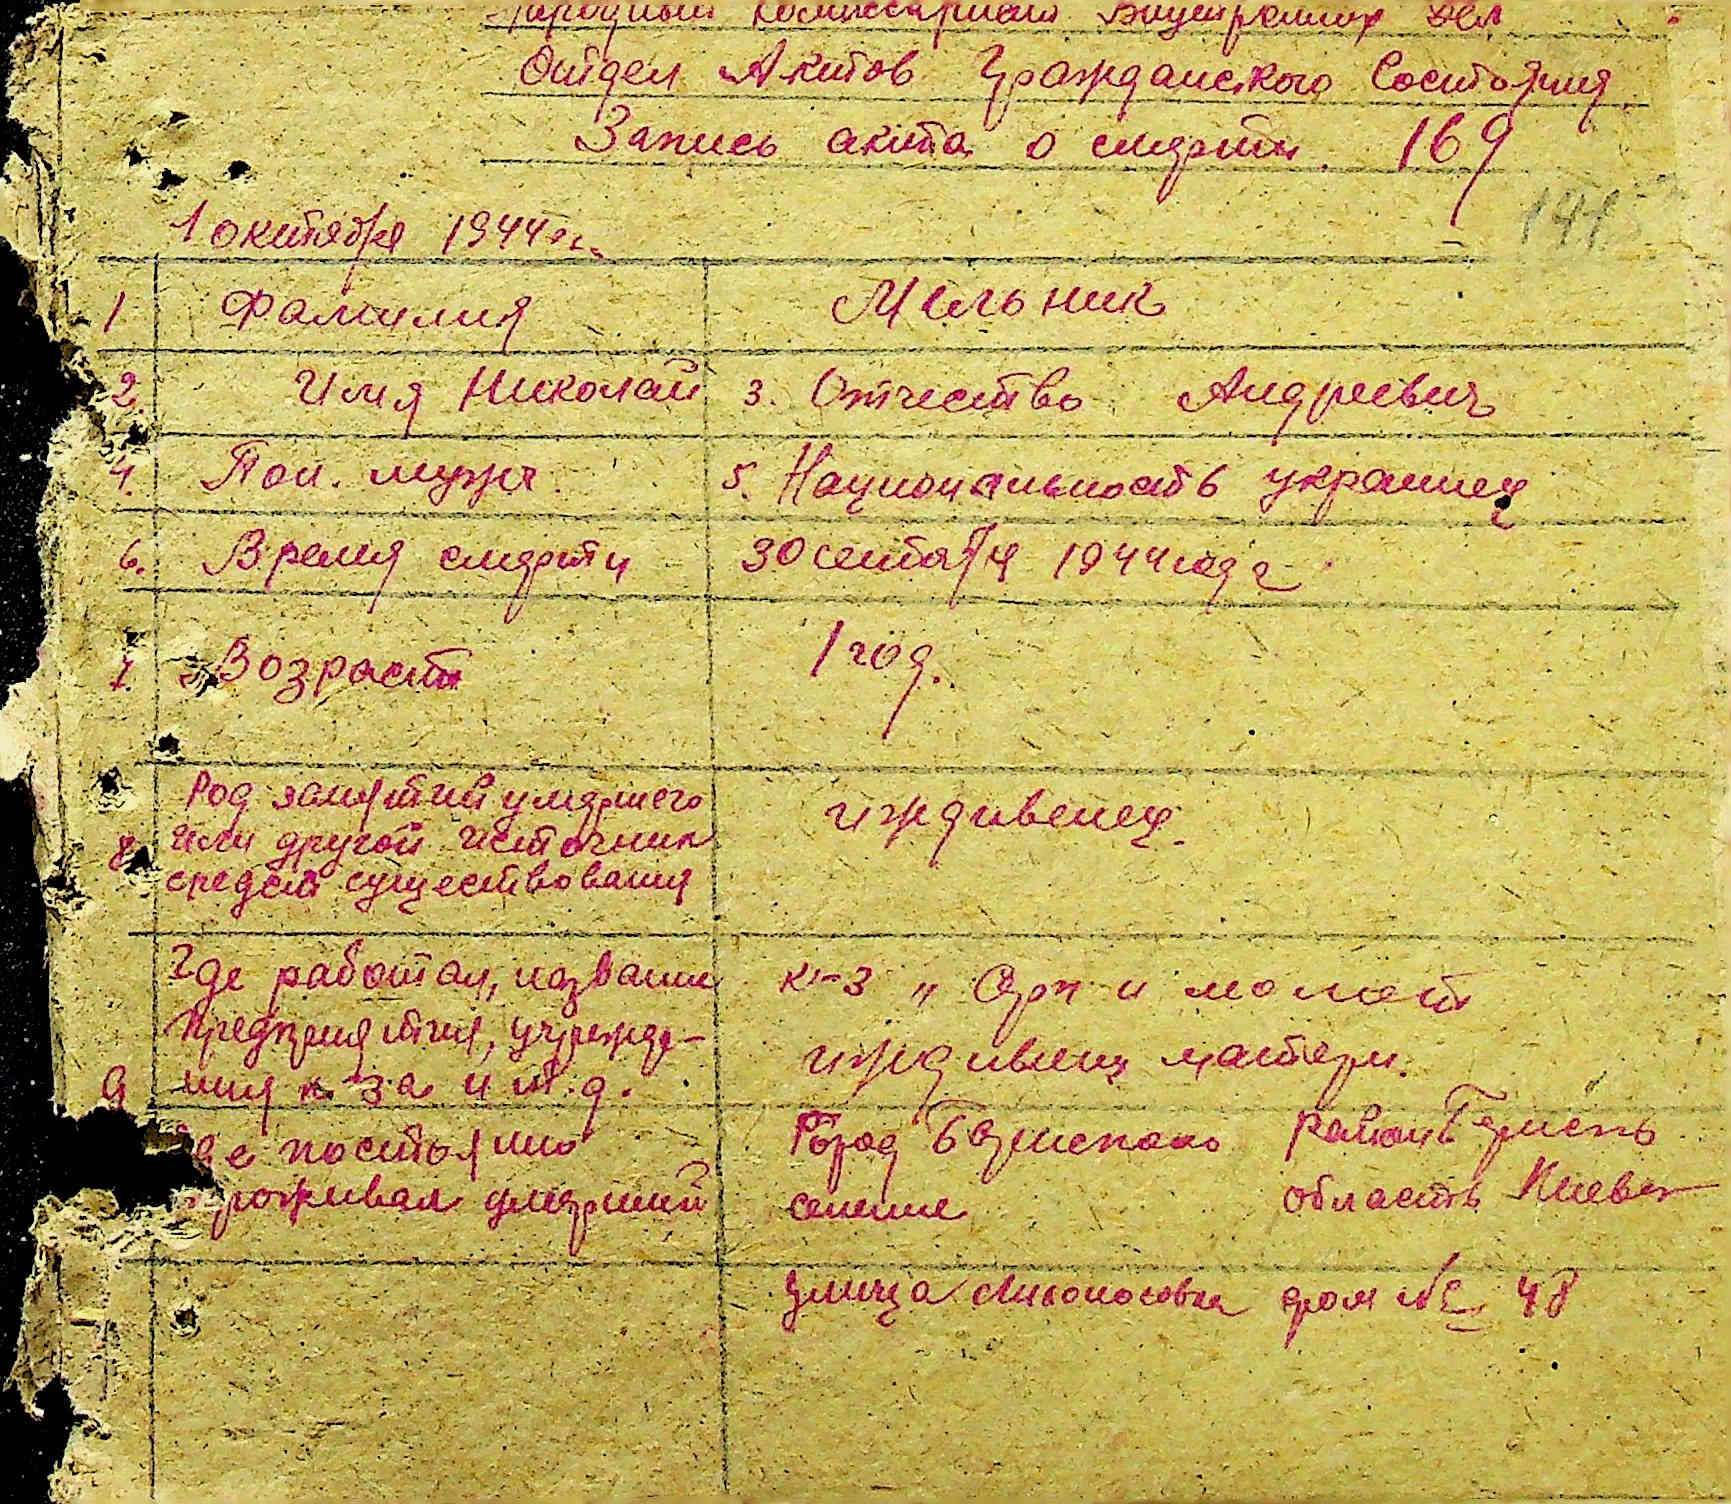 Народный Комиссариат Внутренних Дел
Отдел Актов Гражданского Состояния
Запись акта о смерти. 169
1 октября 1944 г.
1 Фамилия Мельник
2 Имя Николай 3. Отчество Андреевич
4. Пол. мужч. 5. Национальность украинец
6. Время смерти 30 сентября 1944 года
7. Возраст 1 год.
Род занятий умершего
8 или другой источник иждивенец.
средств существования
Где работал, название к-з „Серп и молот
предприятия, учрежде-
иждивенец матери.
9 ния к-за и т.д.
Где постоянно Город район
проживал умерший селение область Киевск
улица дом № 48